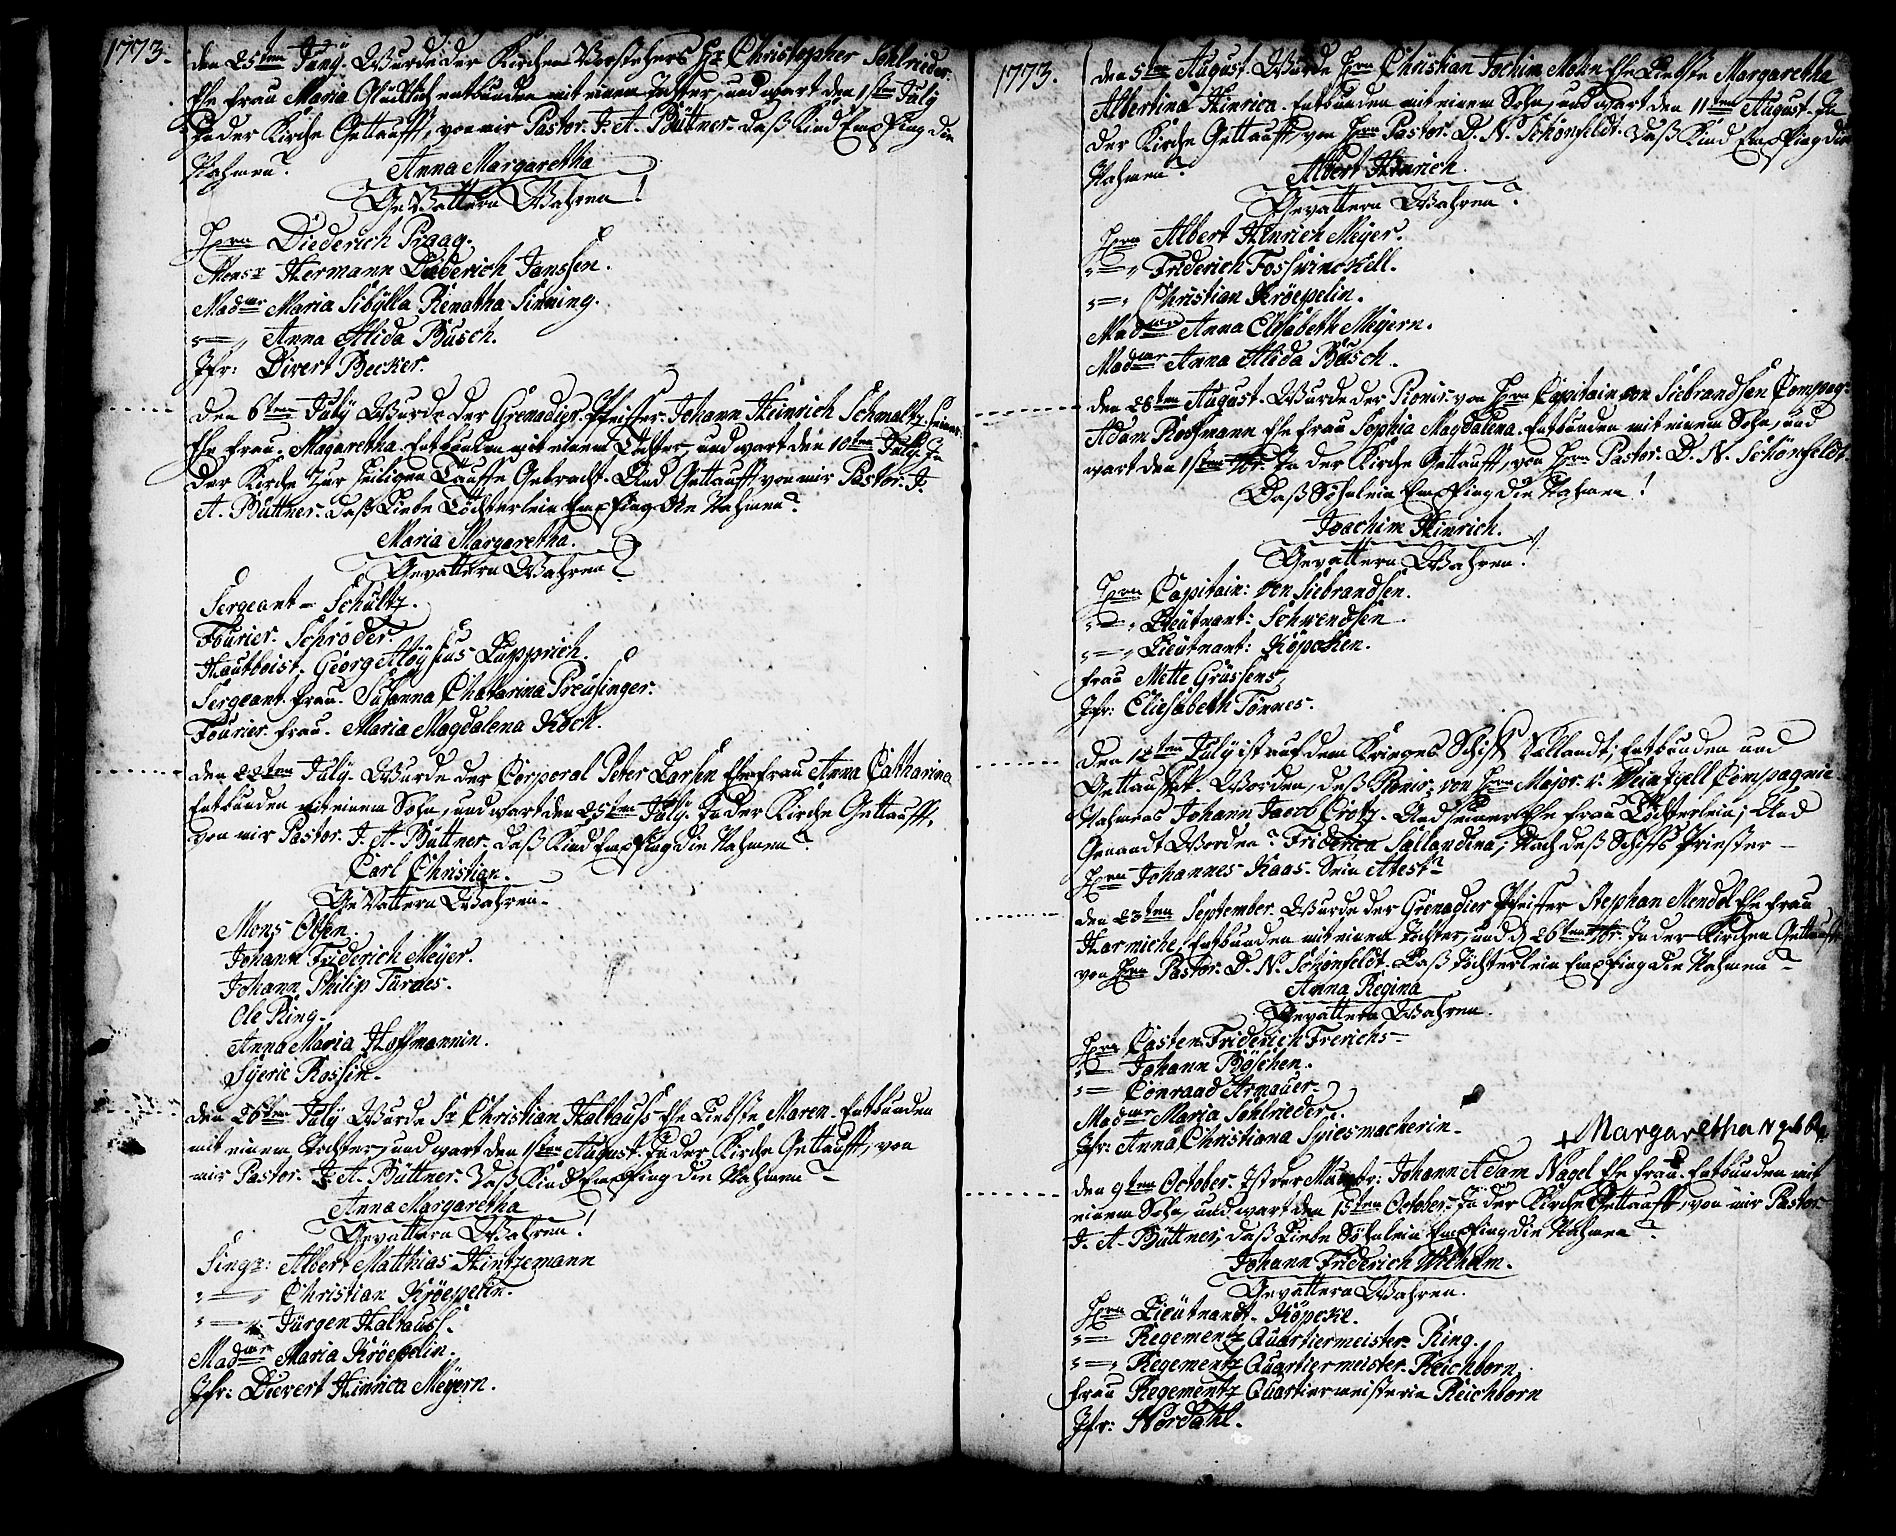 1773.
den 25ten Juny. Wurde der Kirchen Vorstehers Hr. Christopher Sohlrieder.
Ehe frau Maria Glücklich entbunden mit einem Tochter, und wart den 1sten July
In der Kirche Gettaufft, von mir Pastor. J. A. Büttner. Daß Kind Empfing die
Nahmen?
Anna Margaretha
GeVattern Wahren!
Hrn Diederich Praag.
Monsr Hermann Diederich Janssen.
Madme Maria Sibÿlla Renatha Sinning.
" = " Anna Alida Büsch.
Jfr: Divert Becker.
Den 6ten Julÿ Wurde der Grenadier Pfeiffer Johann Heinrich Schmaltz, seiner
Ehe frau. Magaretha. Entbunden mit einem Tochter, und wart den 10ten Julÿ. In
der Kirche Zur Heiligen Tauffe Gebracht. Und Gettaufft von mir Pastor. J.
A. Büttner. Daß Liebe Töchterlein Empfing die Nahmen?
Maria Margaretha.
Gevattern Wahren
Sergeant = Schültz.
Fourier. Schröder.
Hautboist. Georg Aloÿsius Lupprich.
Sergeant. frau. Susanna Chatarina Preusinger.
Fourier. frau. Maria Magdalena Koch.
den 22ten Julÿ. Wurde der Corporal Peter Larsen Ehe frau Anna Catharina
Entbunden mit einem Sohn, und wart den 25ten Julÿ. In der Kirche Gettaufft.
von mir Pastor. J. A. Büttner. Daß Kind Empfing die Nahmen?
Carl Christian.
GeVattern Wahren.
Mons Olsen.
Johann Friderich Meÿer.
Johann Philip Türnes.
Ole Ring.
Anna Maria Hoffmannin.
Sÿeric Rossin.
den 26ten Julÿ Wurde Sr Christian Haltauss Ehe Liebste Maren. Entbunden
mit einem Tochter, und wart den 1sten August. In der Kirche Gettaufft, von
mir Pastor. J. A. Büttner. Daß Kind Empfing die Nahmen
Anna Margaretha
Gevattern Wahren!
Singr: Albert Matthias Hintzemann
" = " Christian Kröepelin.
" = " Jürgen Haltauss.
Madme Maria Kröepelin.
Jfr: Dievert Hinrica Meÿern.
1773.
den 5ten August. Wurde Hrn Christian Jochim Mohn Ehe Liebste Margaretha
Albertina Hinrica. Entbunden mit einem Sohn, und wart den 11ten August. In
der Kirche Gettaufft, von Hrn Pastor. D. N. Schönfeldt. Daß Kind Empfing die
Nahmen?
Albert Hinrich.
Gevattern Wahren?
Hrn Albert Hinrich Meÿer.
" = " Friderich Fosswinckell.
" = " Christian Kröepelin.
Madme Anna Elisabeth Meÿern.
Madme Anna Alida Büsch.
den 28ten August. Wurde der Pionir. von Hrn Capitain von Siebrandsen Compag:
Adam Roossmann Ehe frau Sophia Magdalena. Entbunden mit einem Sohn, und
wart den 1sten 7br. In der Kirche Gettaufft, von Hrn Pastor. D. N. Schönfeldt.
Daß Söhnlein Empfing die Nahmen!
Joachim Hinrich.
Gevattern Wahren!
Hrn Capitain: von Siebrandsen.
" = " Lieutnant: Schwendsen.
" = " Lieutnant: Köpcken.
frau Mette Grüssens,
Jfr: Eliesabeth Tönnes.
Den 12ten Julÿ ist auf dem Krieges Schiff Sallandt; Entbunden und
Gettaufft. Worden, deß Pionir: von Hrn Major. v. Weintzell Compagnie.
Nahmens Johann Jacob Crotz. Und seiner Ehe frau Töchterlein; Und
Genandt Worden? Friderica Sallandina; Nach deß Schiffs Priester
Hrn Johannes Kaas. Sein Atest?
den 23ten September. Wurde der Grenadier Pfeiffer Stephan Mendel Ehe frau
Harmiche, Entbunden mit einem Tochter, und d 26ten 7br. In der Kirchen Gettaufft
von Hrn Pastor. D. N. Schönfeldt. Daß Töchterlein Empfing die Nahmen?
Anna Regina
Gevattern Wahren.
Hrn Casten Friderich Frerichs
" = Johann Böschen.
" = Conraad Armauer.
Madme Maria Sohlrieder.
Jfr: Anna Christiana Spiesmacherin.
+ Margaretha
den 9ten October. Ist der Johann Adam Nagel Ehe frau + Entbunden mit
einem Sohn, und wart den 15ten October. In der Kirche Gettaufft, von mir Pastor
J. A. Büttner, daß Liebe Söhnlein Empfing die Nahmen?
Johann Friderich Wilhelm.
Gevattern Wahren.
Hrn Lieutnandt. Köpcke.
" = Regementz Quartiermeister. Ring.
" = " Regementz Quartiermeister. Reichborn.
frau Regementz Quartiermeisterin Reichborn
Jfr: Nordahl.